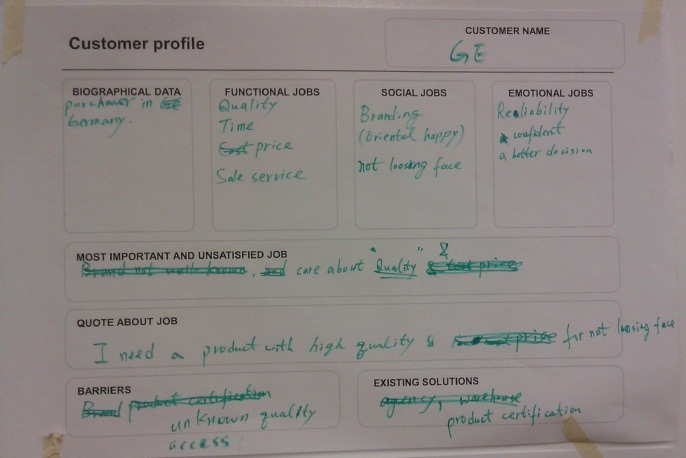 Customer profile
CUSTOMER NAME
GE
BIOGRAPHICAL DATA
purchaser in GE
Germany.
FUNCTIONAL JOBS
Quality
Time
Cost price
Sale service
SOCIAL JOBS
Branding
(oriental happy)
not loosing face
EMOTIONAL JOBS
Realiability
confident
a better decision
MOST IMPORTANT AND UNSATISFIED JOB
Brand not well known, and care about "Quality" & & cost price
QUOTE ABOUT JOB
I need a product with high quality & price for not loosing face
BARRIERS
Brand product certification
unknown quality
access
EXISTING SOLUTIONS
agency, warehouse
product certification